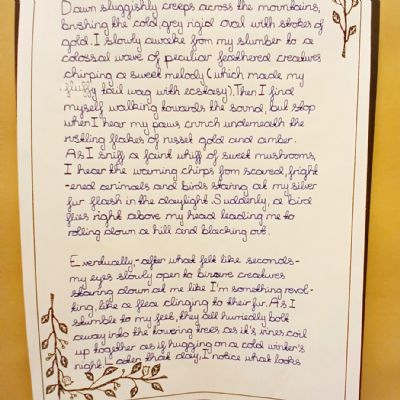 Dawn sluggishly creeps across the mountains,
brushing the cold, grey rigid oval with strokes of
gold. I slowly awake from my slumber to a
colossal wave of peculiar feathered creatures
chirping a sweet melody (which made my
fluffy tail wag with ecstasy). Then I find
myself walking towards the sound, but stop
when I hear my paws crunch underneath the
rustling flakes of russet gold and amber.
As I sniff a faint whiff of sweet mushrooms,
I hear the warning chirps from scared, fright
-ened animals and birds staring at my silver
fur flash in the daylight. Suddenly, a bird
flies right above my head leading me to
rolling down a hill and blacking out.
Eventually,-after what felt like seconds-
my eyes slowly open to bizarre creatures
staring down at me like I'm something revol-
ting, like a flea clinging to their fur. As I
stumble to my feet, they all hurriedly bolt
away into the towering trees as it's vines coil
up together as if hugging on a cold winter's
night. Later that day, I notice what looks